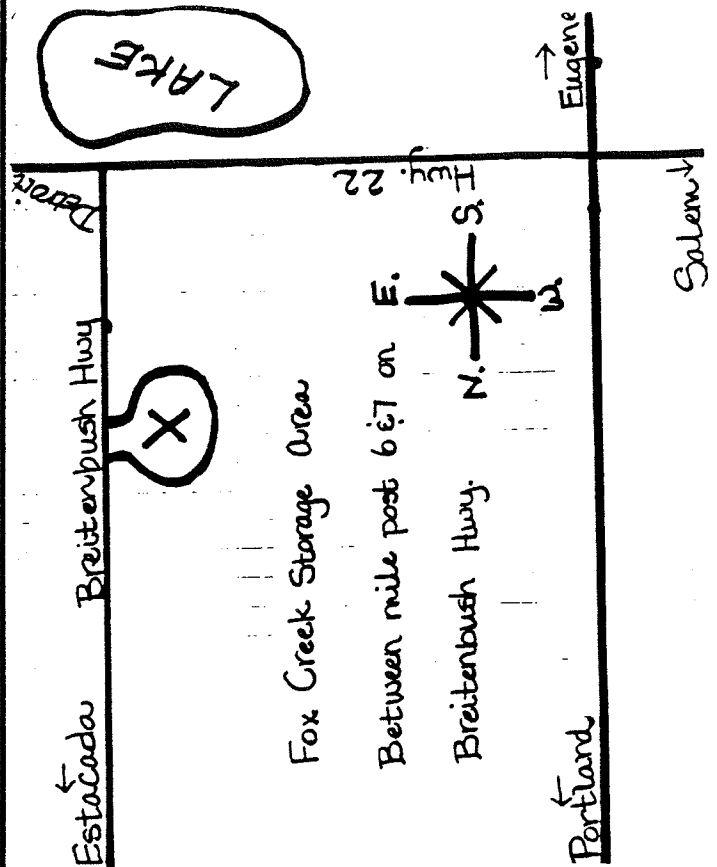 LAKE
Eugene →
Detroit
Hwy. 22
Salem →
Breitenbush Hwy
X
N.
E.
S.
W.
Fox Creek Storage area
Between mile post 6 & 7 on
Breitenbush Hwy.
Estacada ←
Portland ←